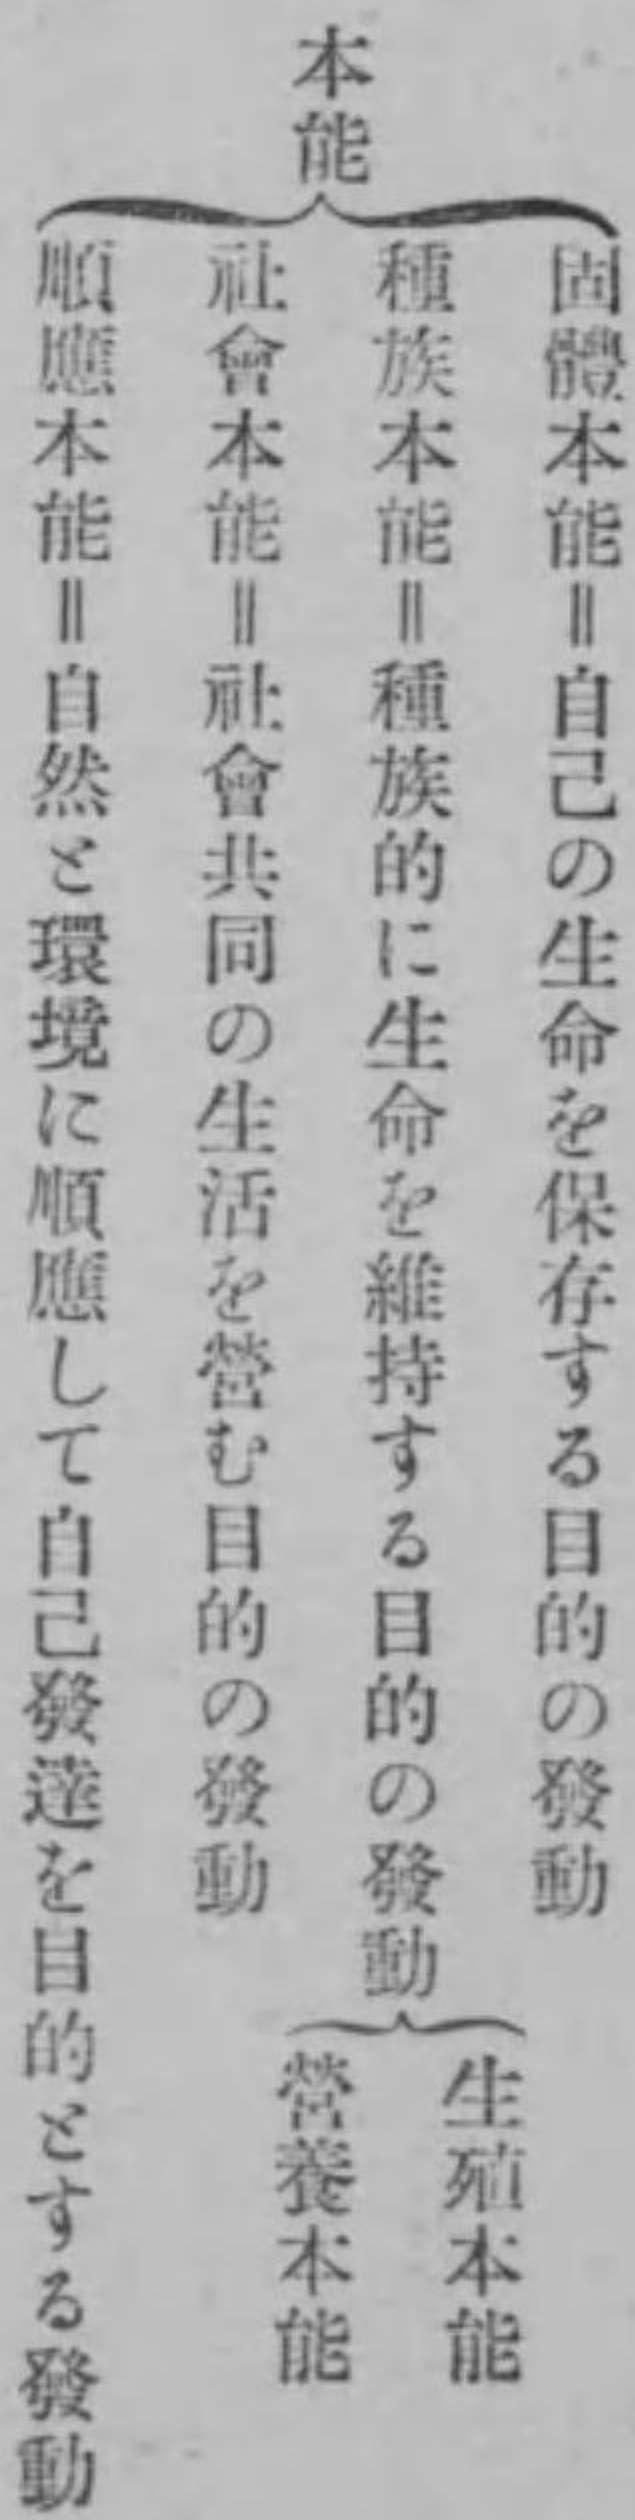 本能
固體本能＝自己の生命を保存する目的の發動
種族本能＝種族的に生命を維持する目的の發動
生殖本能
營養本能
社會本能＝社會共同の生活を營む目的の發動
順應本能＝自然と環境に順應して自己發達を目的とする發動